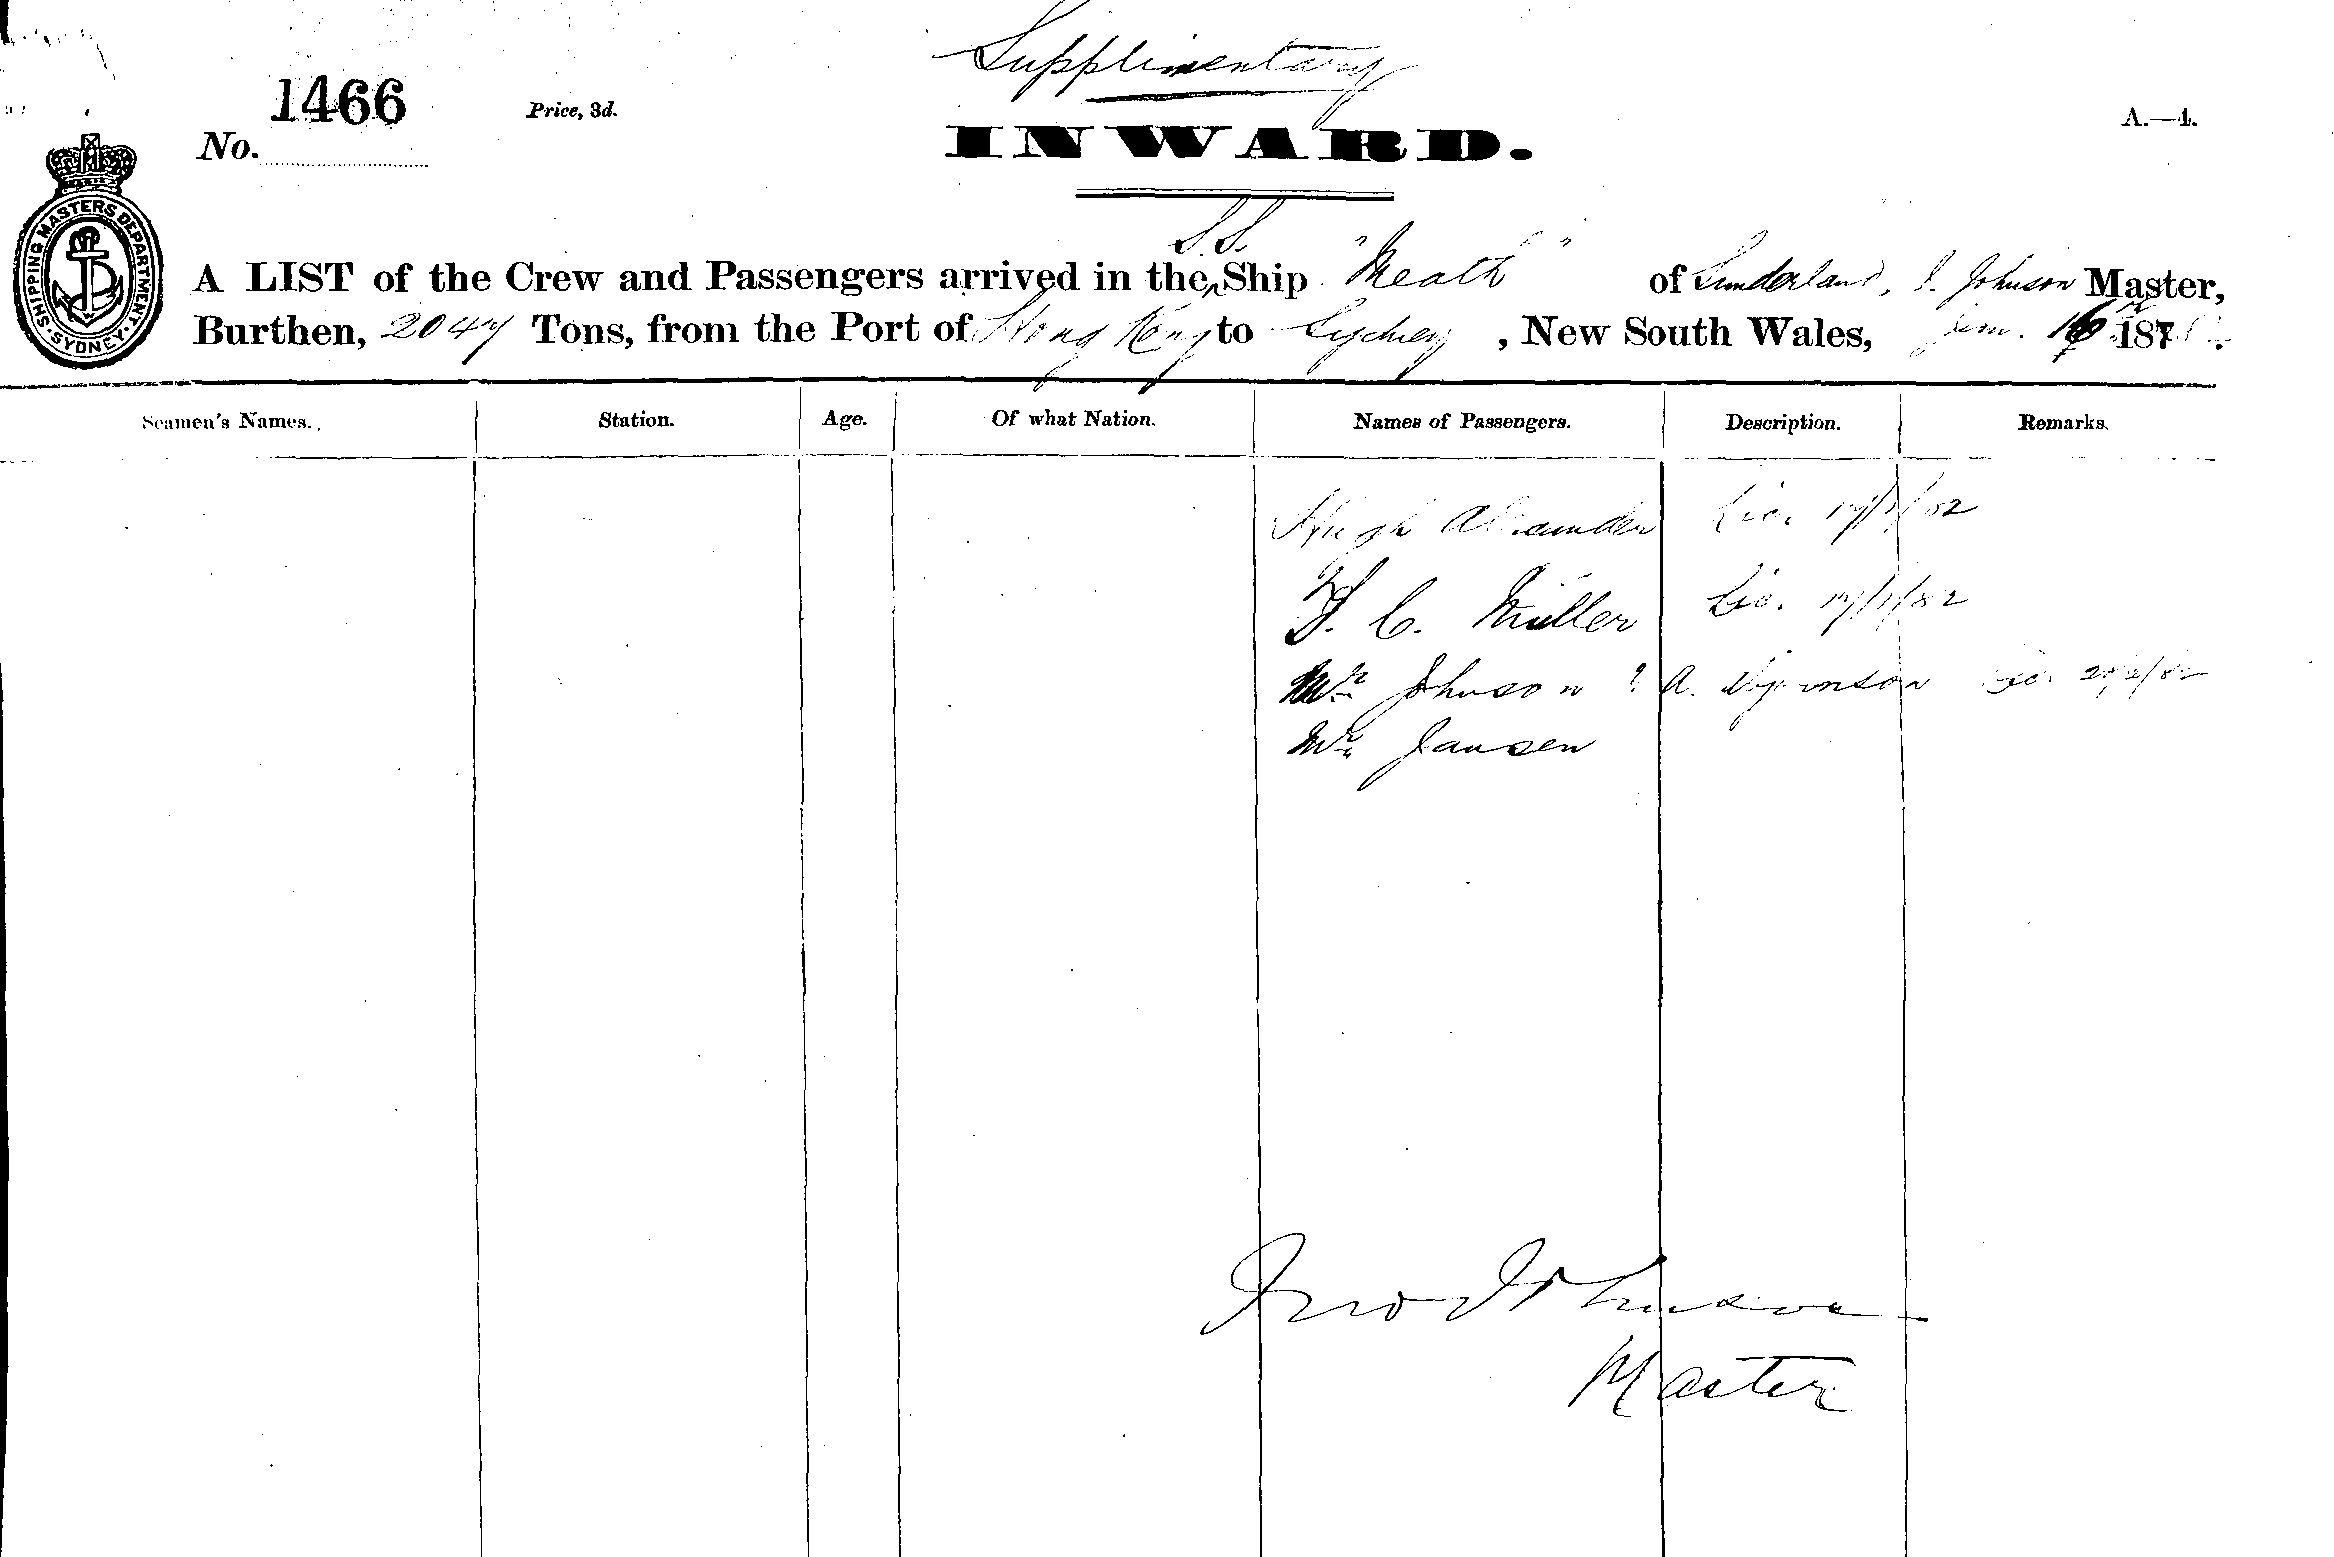 Supplimentary
1466
Price, 3d.
A.—4.
No.
INWARD.
SHIPPING MASTERS DEPARTMENT · SYDNEY ·
S.S.
A LIST of the Crew and Passengers arrived in the ^ Ship "Meath" of Sunderland, J. Johnson Master,
Burthen, 2047 Tons, from the Port of Hong Kong to Sydney, New South Wales, Jan. 16 187
Seamen's Names. Station. Age. Of what Nation. Names of Passengers. Description. Remarks.
Hugh Alexander Lic. 17/1/82
F. C. Müller Lic. 17/1/82
Mr Johnson ? A.
Mr Jansen
Jno Johnson
Master